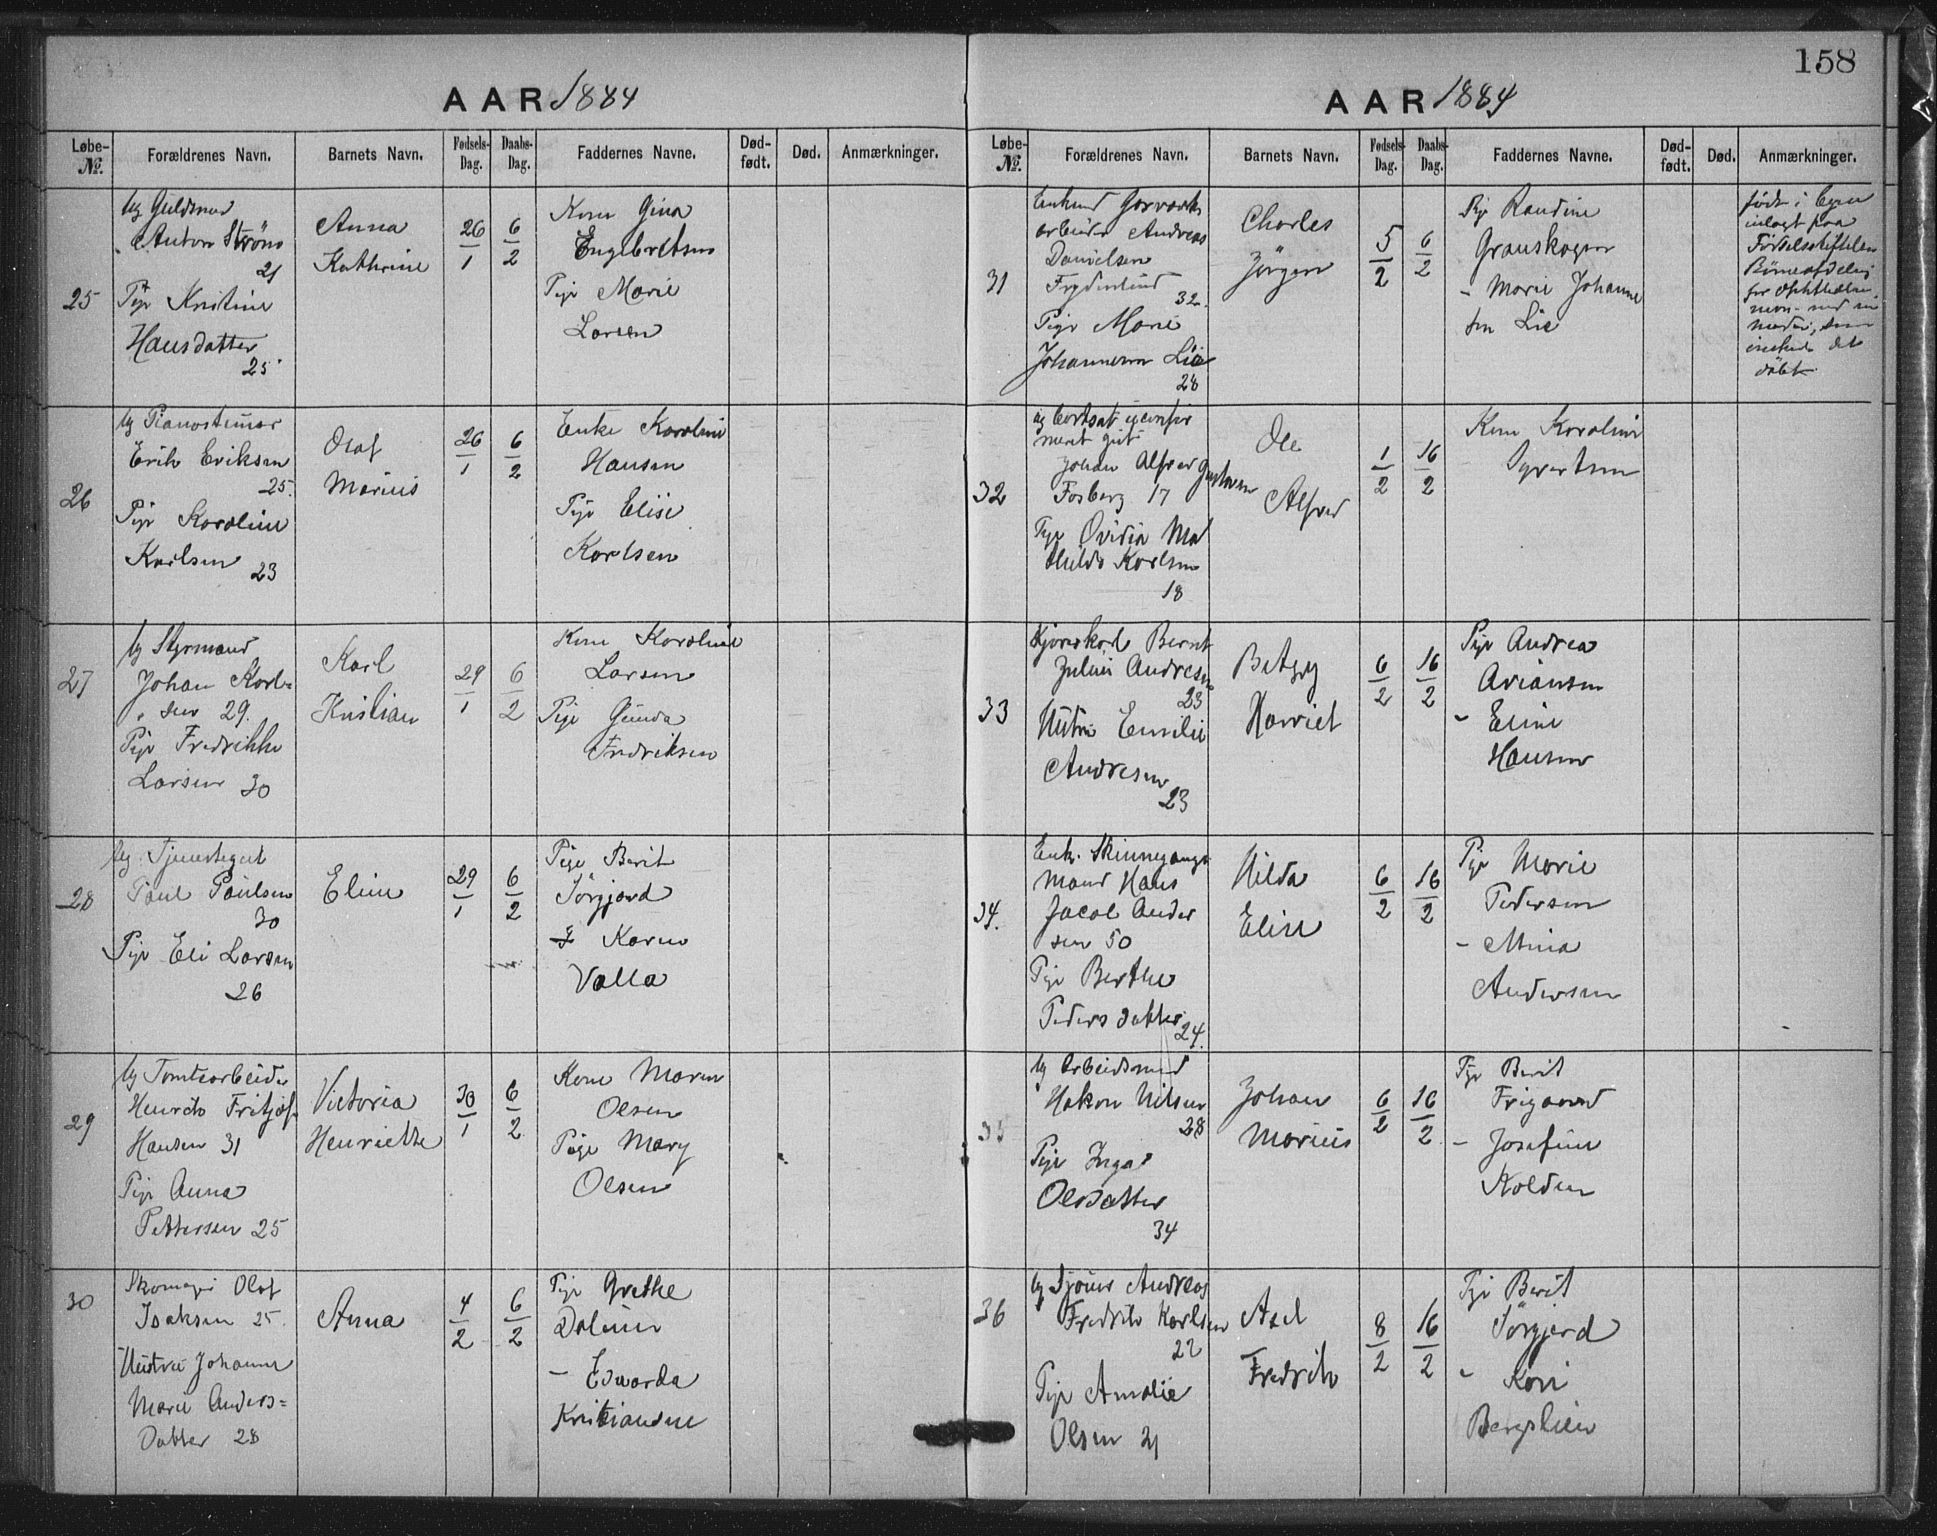 AAR 1884
Løbe-№. Forældrenes Navn. Barnets Navn. Fødsels-Dag. Daabs-Dag. Faddernes Navne. Død-født. Død. Anmærkninger.
25
Ug Guldsmed
Anton Strøm
21
Pige Kristine
Hansdatter
25
Anna
Kathrine
26/1
6/2
Kone Gina
Engebretsen
Pige Marie
Larsen
26
Ug Pianostemmer
Erik Eriksen
25.
Pige Karoline
Karlsen 23
Olaf
Marius
26/1
6/2
Enke Karoline
Hansen
Pige Elise
Karlsen
27
Ug Styrmand
Johan Karl=
sen 29.
Pige Fredrikke
Larsen 30
Karl
Kristian
29/1
6/2
Kone Karoline
Larsen
Pige Gunda
Fredriksen
28
Ug. Tjenestegut
Paul Paulsen
30
Pige Eli Larsen
26
Eline
29/1
6/2
Pige Berit
Sørgjerd
Karen
Valla
29
Ug Tomtearbeider
Henrik Fritjof
Hansen 31
Pige Anna
Pettersen 25
Victoria
Henriette
30/1
6/2
Kone Maren
Olsen
Pige Mary
Olsen
30
Skomager Olaf
Isaksen 25.
Hustru Johanne
Marie Anders=
datter 28
Anna
4/2
6/2
Pige Grethe
Daleim
— Edvarda
Kristiansen
158
AAR 1884
Løbe-№. Forældrenes Navn. Barnets Navn. Fødsels-Dag. Daabs-Dag. Faddernes Navne. Død-født. Død. Anmærkninger.
31
Enkemd Gasværks
arbeider Andreas
Danielsen
Frydenlund
32.
Pige Marie
Johannesen Lie
28
Charles
Jørgen
5/2
6/2
Pige Randine
Granskogen
— Marie Johanne
sen Lie
født i Byen
indlagt paa
Fødselsstiftelsen
Børneafdeling
for
med sin
moder, som
ønskede det
døbt
32
ug
Johan Alfred Gustavsen
Fosberg 17
Pige Ovidia Ma
thilde Karlsen
18
Ole
Alfred
1/2
16/2
Kone Karoline
Syvertsen
33
Kjørekarl Bernt
Julius Andresen
23
Hustru Emilie
Andresen
23
Betzy
Harriet
6/2
16/2
Pige Andrea
Ariansen
— Eline
Hansen
34.
Enk. Skinnegangs
mand Hans
Jacob Ander
sen 50
Pige Berthe
Pedersdatter
24.
Hilda
Elise
6/2
16/2
Pige Marie
Pedersen
— Mina
Andersen
35
Ug Arbeidsmd
Hakon Nilsen
28
Pige Inga
Olsdatter
34
Johan
Marius
6/2
16/2
Pige Berit
Frigaard
— Josefine
Kolden
36
Ug Sjømd Andreas
Fredrik Karlsen
22
Pige Amalie
Olsen 21
Axel
Fredrik
8/2
16/2
Pige Berit
Sørgjerd
— Kari
Bergslien